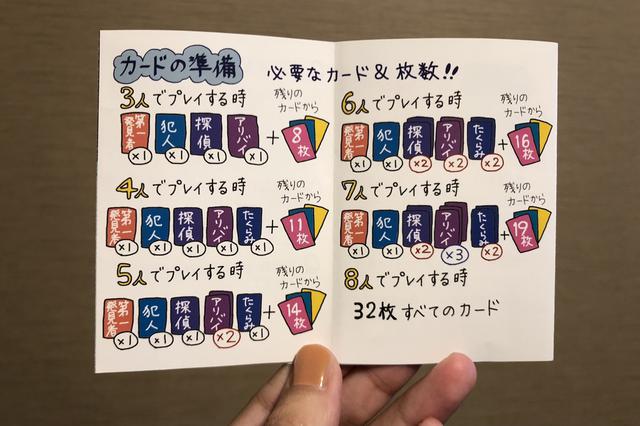 カードの準備
必要なカード&枚数!!
3人でプレイする時
残りのカードから
第一発見者 ×1 犯人 ×1 探偵 ×1 アリバイ ×1 + 8枚
4人でプレイする時
残りのカードから
第一発見者 ×1 犯人 ×1 探偵 ×1 アリバイ ×1 たくらみ ×1 + 11枚
5人でプレイする時
残りのカードから
第一発見者 ×1 犯人 ×1 探偵 ×1 アリバイ ×2 たくらみ ×1 + 14枚
6人でプレイする時
残りのカードから
第一発見者 ×1 犯人 ×1 探偵 ×2 アリバイ ×2 たくらみ ×2 + 16枚
7人でプレイする時
残りのカードから
第一発見者 ×1 犯人 ×1 探偵 ×2 アリバイ ×3 たくらみ ×2 + 19枚
8人でプレイする時
32枚すべてのカード